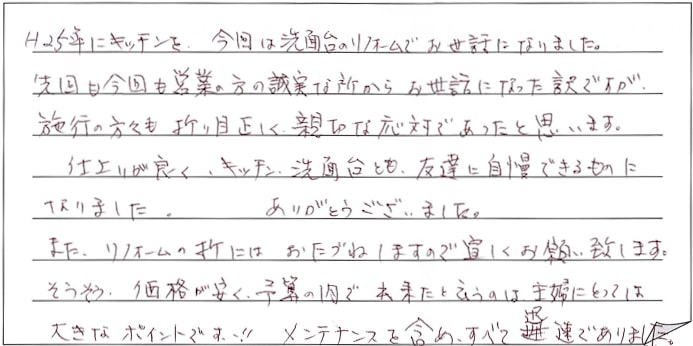 H25年にキッチンを、今回は洗面台のリフォームでお世話になりました。
先回も今回も営業の方の誠実な所からお世話になった訳ですが、
施行の方々も折り目正しく、親切な応対であったと思います。
仕上りが良く、キッチン、洗面台とも、友達に自慢できるものに
なりました。 ありがとうございました。
また、リフォームの折には おたづねしますので宜しくお願い致します。
そうそう、価格が安く、予算の内で出来たと云うのは、主婦にとっては
大きなポイントです!! メンテナンスを含め、すべて迅速でありました。